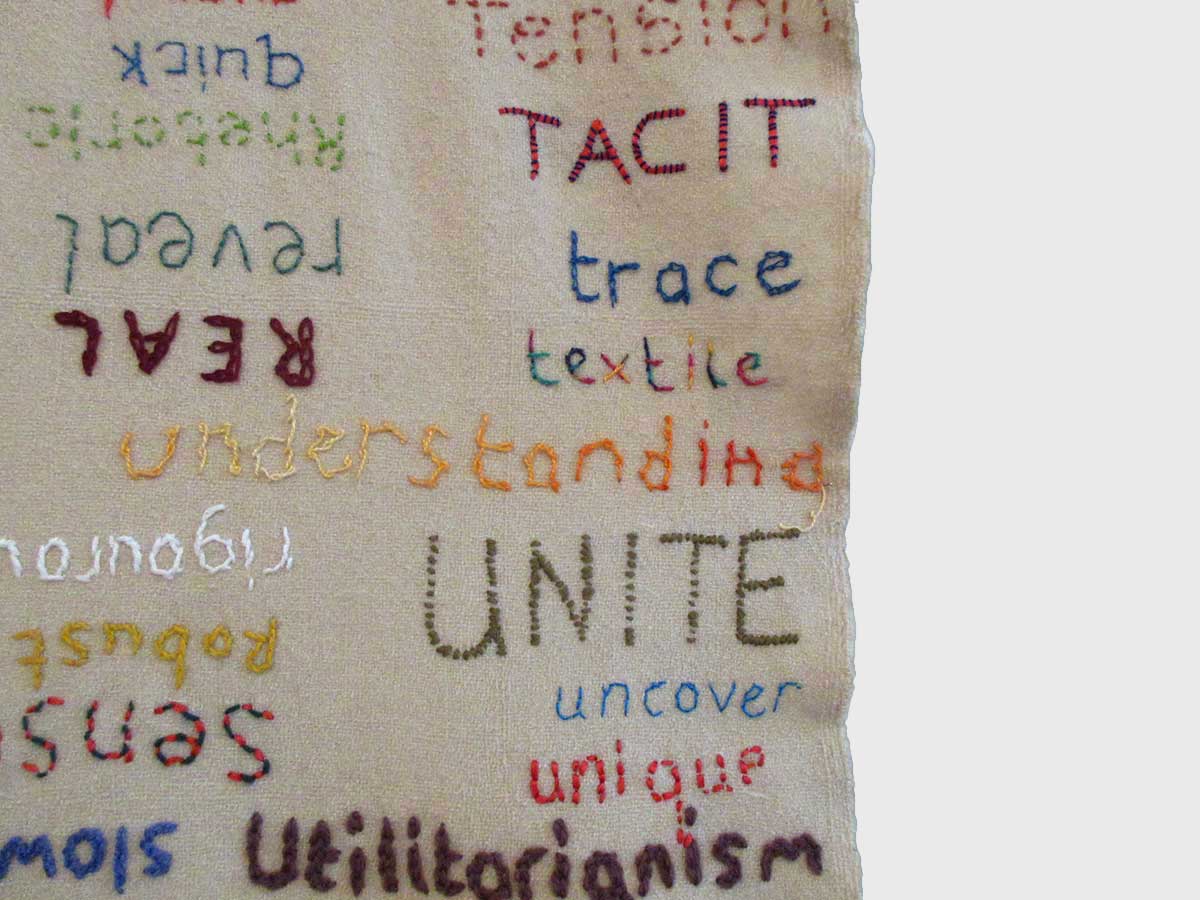 quick
Rhetoric
reveal
REAL
rigourou
Robust
Sens
slow
Tension
TACIT
trace
textile
understanding
UNITE
uncover
unique
Utilitarianism